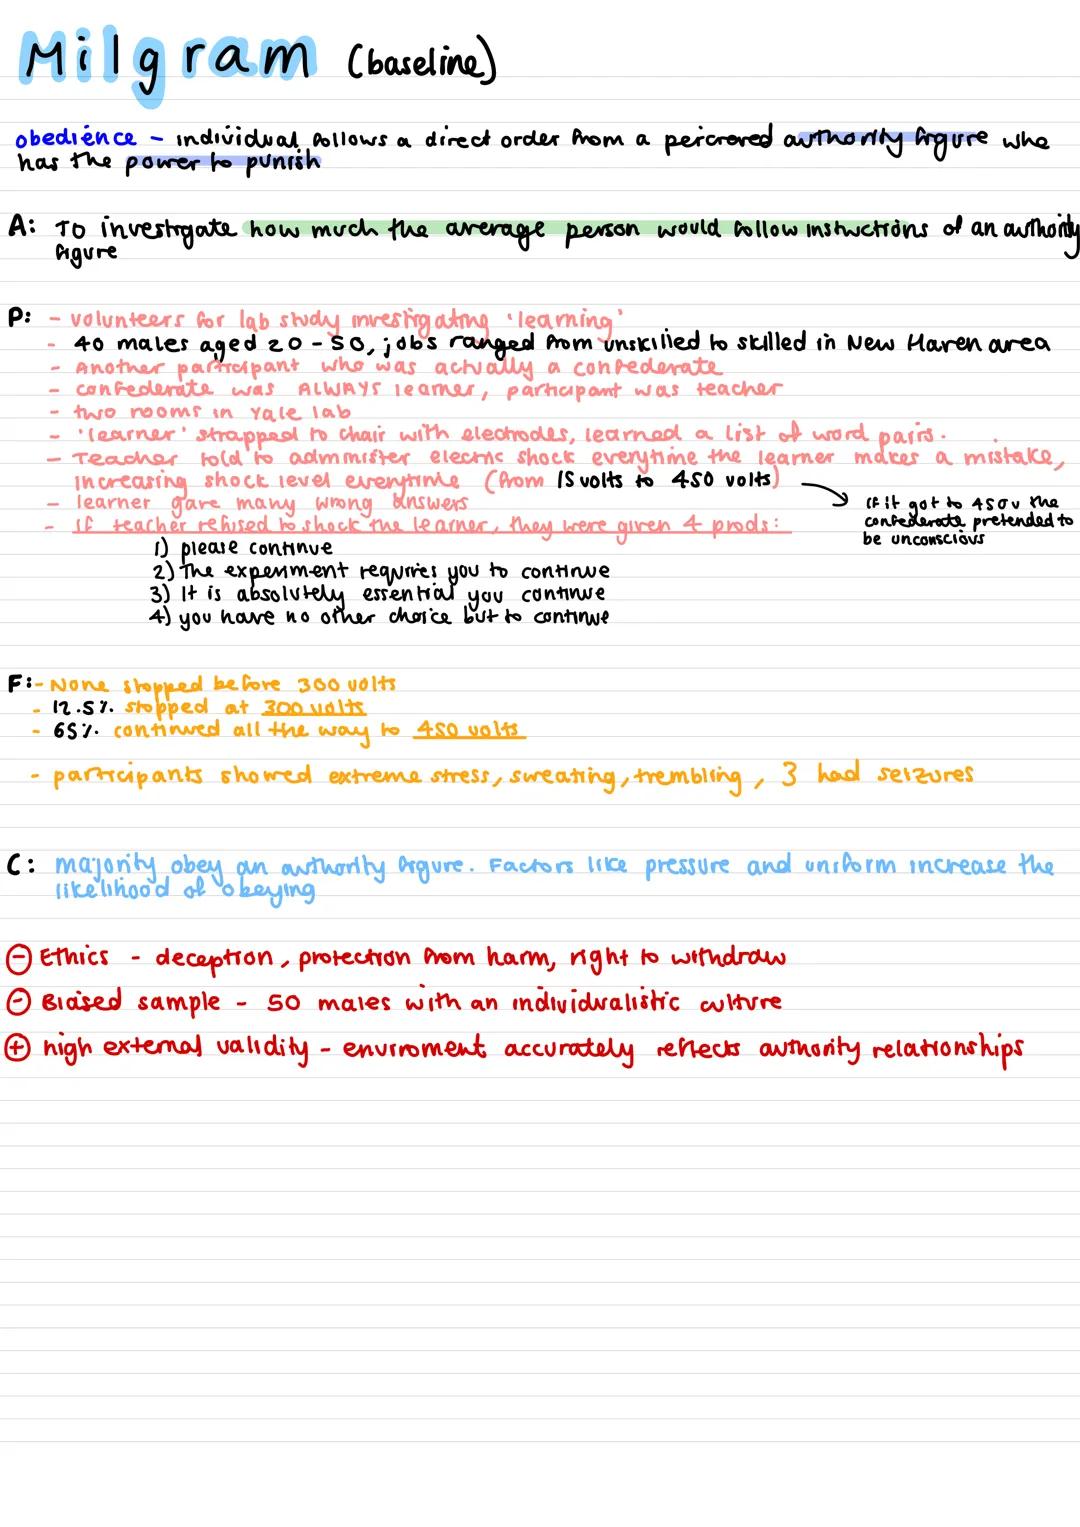 Milgram (baseline)
obedience - individual follows a direct order from a percieved authority figure who
has the power to punish
A: To investigate how much the average person would follow instructions of an authority
figure
P: - volunteers for lab study investigating 'learning'
- 40 males aged 20-50, jobs ranged from unskilled to skilled in New Haven area
- Another participant who was actually a confederate
- confederate was ALWAYS learner, participant was teacher
- two rooms in Yale lab
- 'learner' strapped to chair with electrodes, learned a list of word pairs.
- Teacher told to administer electric shock everytime the learner makes a mistake,
increasing shock level everytime (from 15 volts to 450 volts)
- learner gave many wrong answers
if it got to 450v the
confederate pretended to
be unconscious
- if teacher refused to shock the learner, they were given 4 prods:
1) please continue
2) The experiment requires you to continue
3) It is absolutely essential you continue
4) you have no other choice but to continue
F: - None stopped before 300 volts
- 12.5% stopped at 300 volts
- 65% continued all the way to 450 volts
- participants showed extreme stress, sweating, trembling, 3 had seizures
C: majority obey an authority figure. Factors like pressure and uniform increase the
likelihood of obeying
- Ethics - deception, protection from harm, right to withdraw
- Biased sample - 50 males with an individualistic culture
+ high external validity - enviroment accurately reflects authority relationships